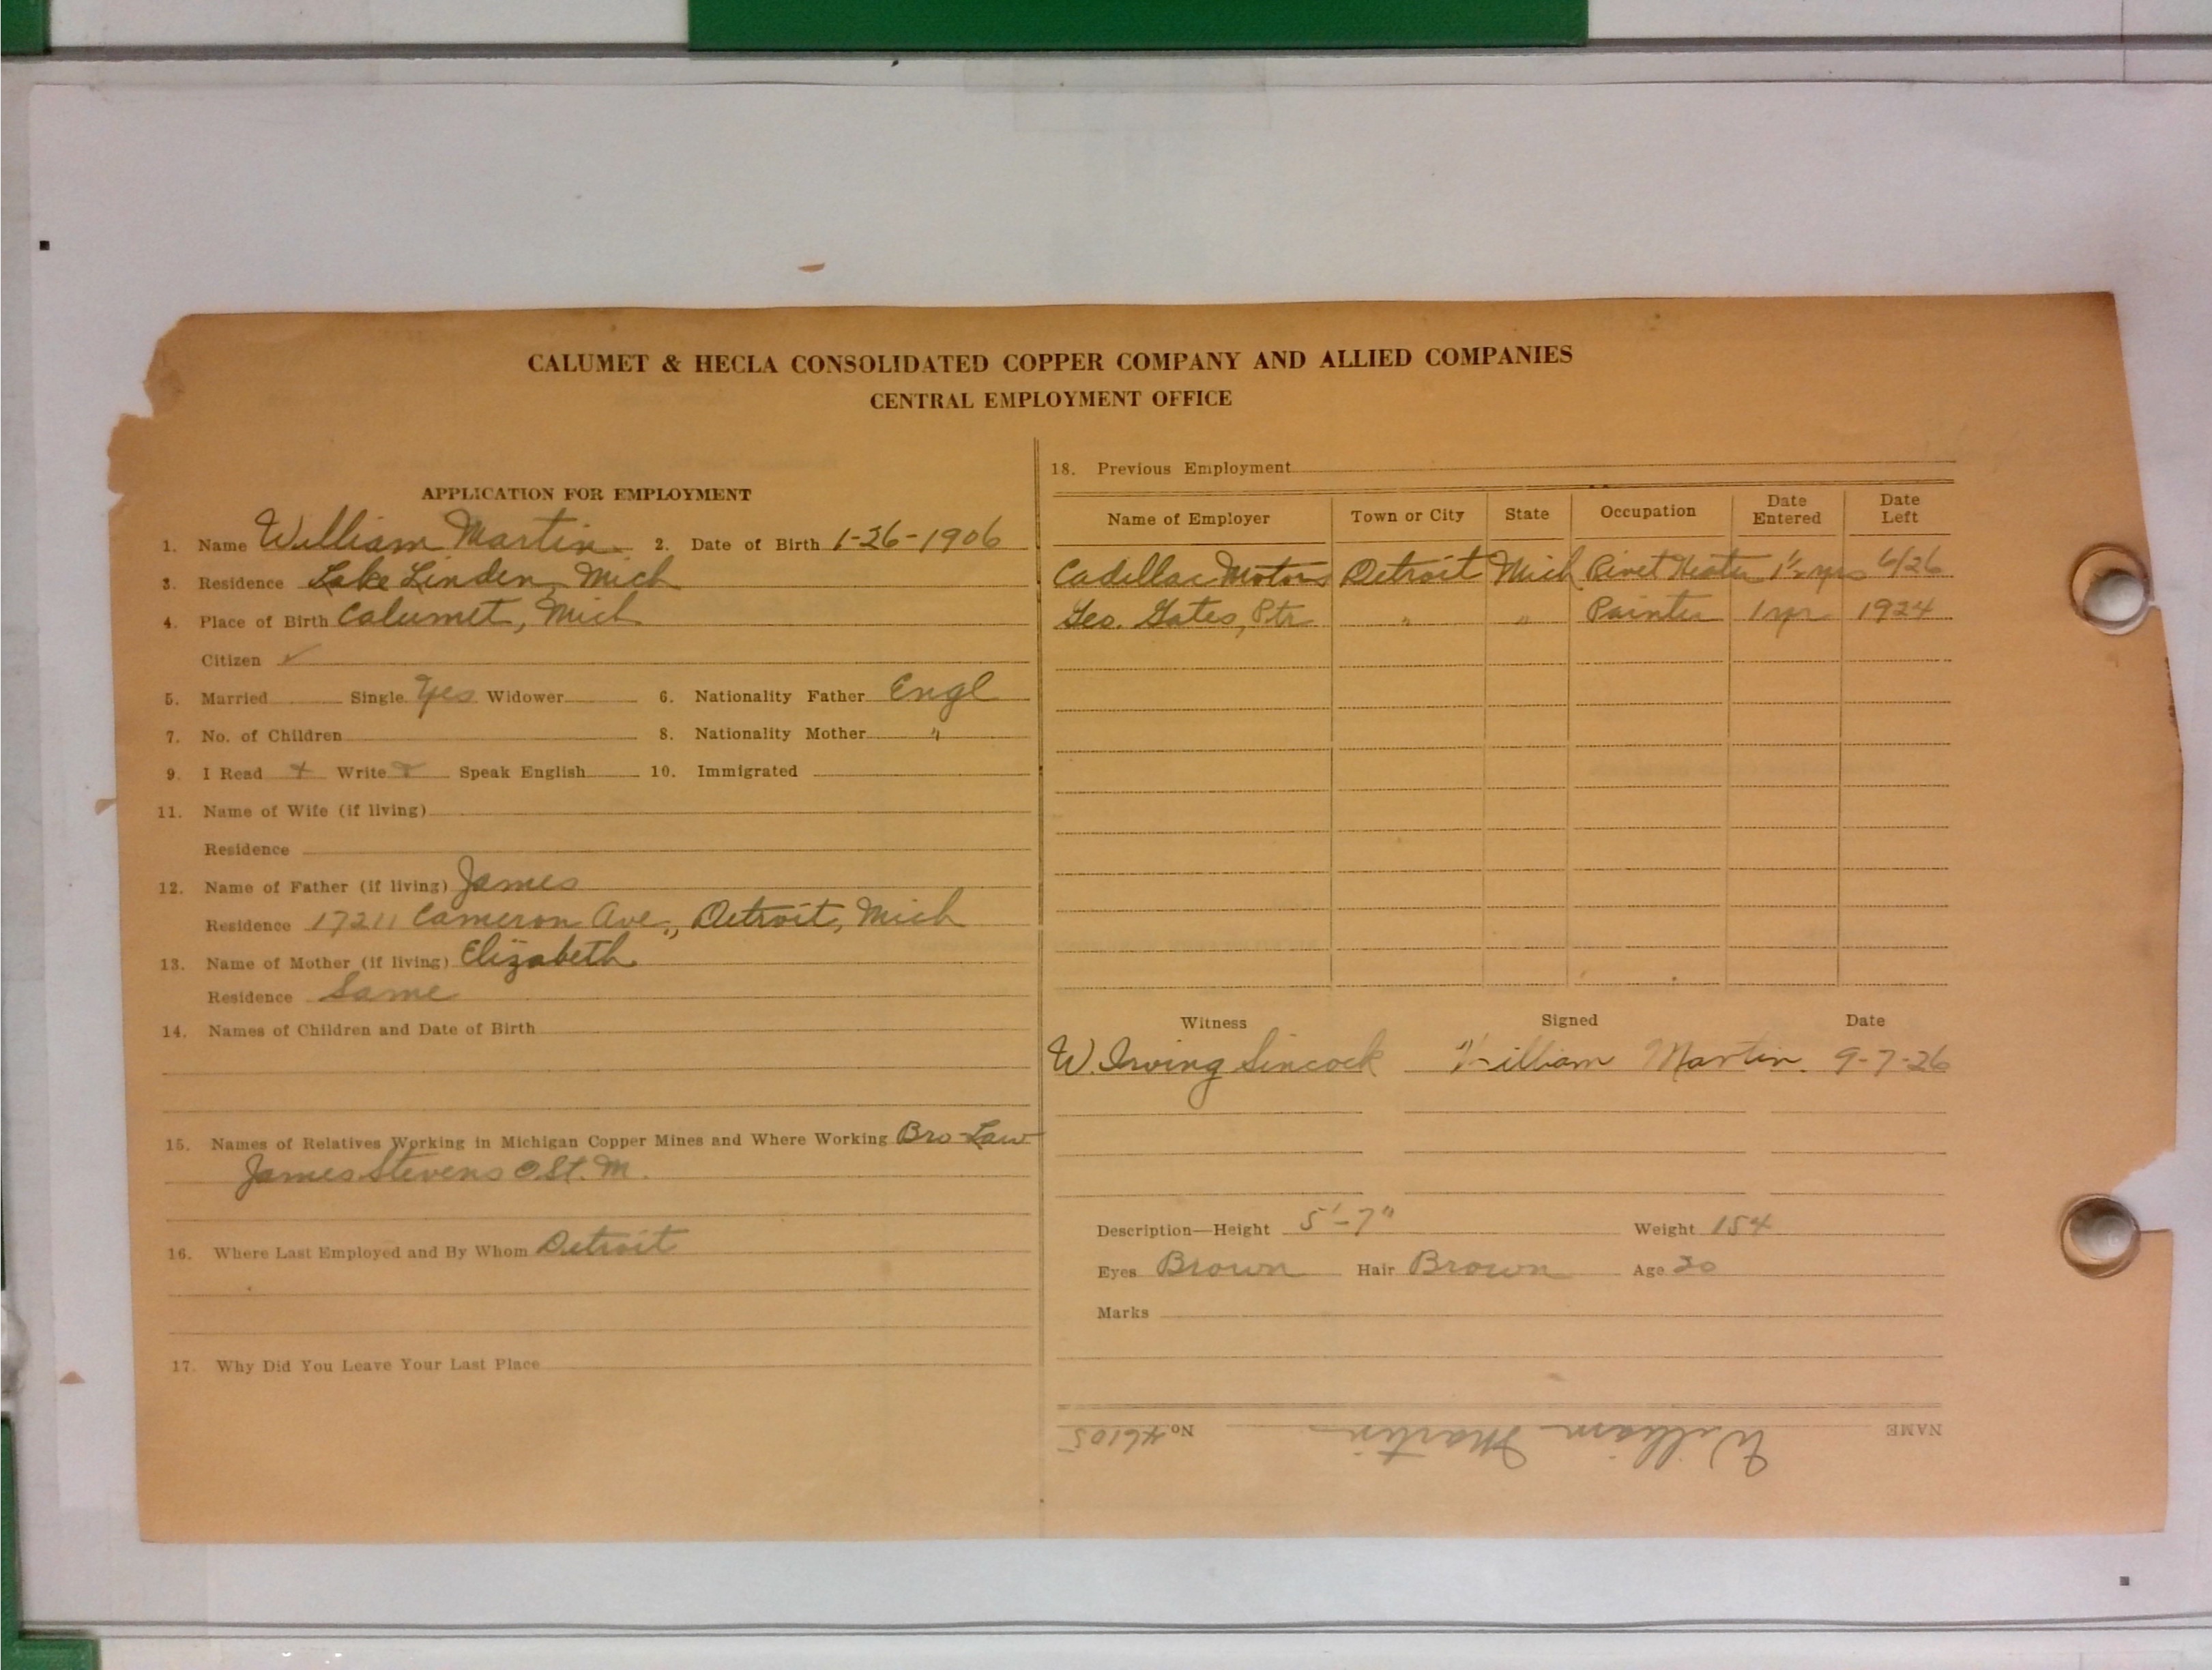 CALUMET & HECLA CONSOLIDATED COPPER COMPANY AND ALLIED COMPANIES
CENTRAL EMPLOYMENT OFFICE
APPLICATION FOR EMPLOYMENT
1. Name William Martin. 2. Date of Birth 1-26-1906
3. Residence Lake Linden, Mich
4. Place of Birth Calumet, Mich
Citizen ✓
5. Married Single Yes Widower 6. Nationality Father Engl
7. No. of Children 8. Nationality Mother "
9. I Read Write Speak English 10. Immigrated
11. Name of Wife (if living)
Residence
12. Name of Father (if living) James
Residence 17211 Cameron Ave., Detroit, Mich
13. Name of Mother (if living) Elizabeth
Residence Same
14. Names of Children and Date of Birth
15. Names of Relatives Working in Michigan Copper Mines and Where Working Bro-Law
James Stevens St. M.
16. Where Last Employed and By Whom Detroit
17. Why Did You Leave Your Last Place
18. Previous Employment
Name of Employer Town or City State Occupation Date Entered Date Left
Cadillac Motors Detroit Mich Rivet Heater 1½ yrs 6/26
Geo. Gates, Ptr " " Painter 1 yr 1924
Witness Signed Date
W. Irving Sincock William Martin. 9-7-26
Description—Height 5'-7" Weight 154
Eyes Brown Hair Brown Age 20
Marks
NAME William Martin No. 46105